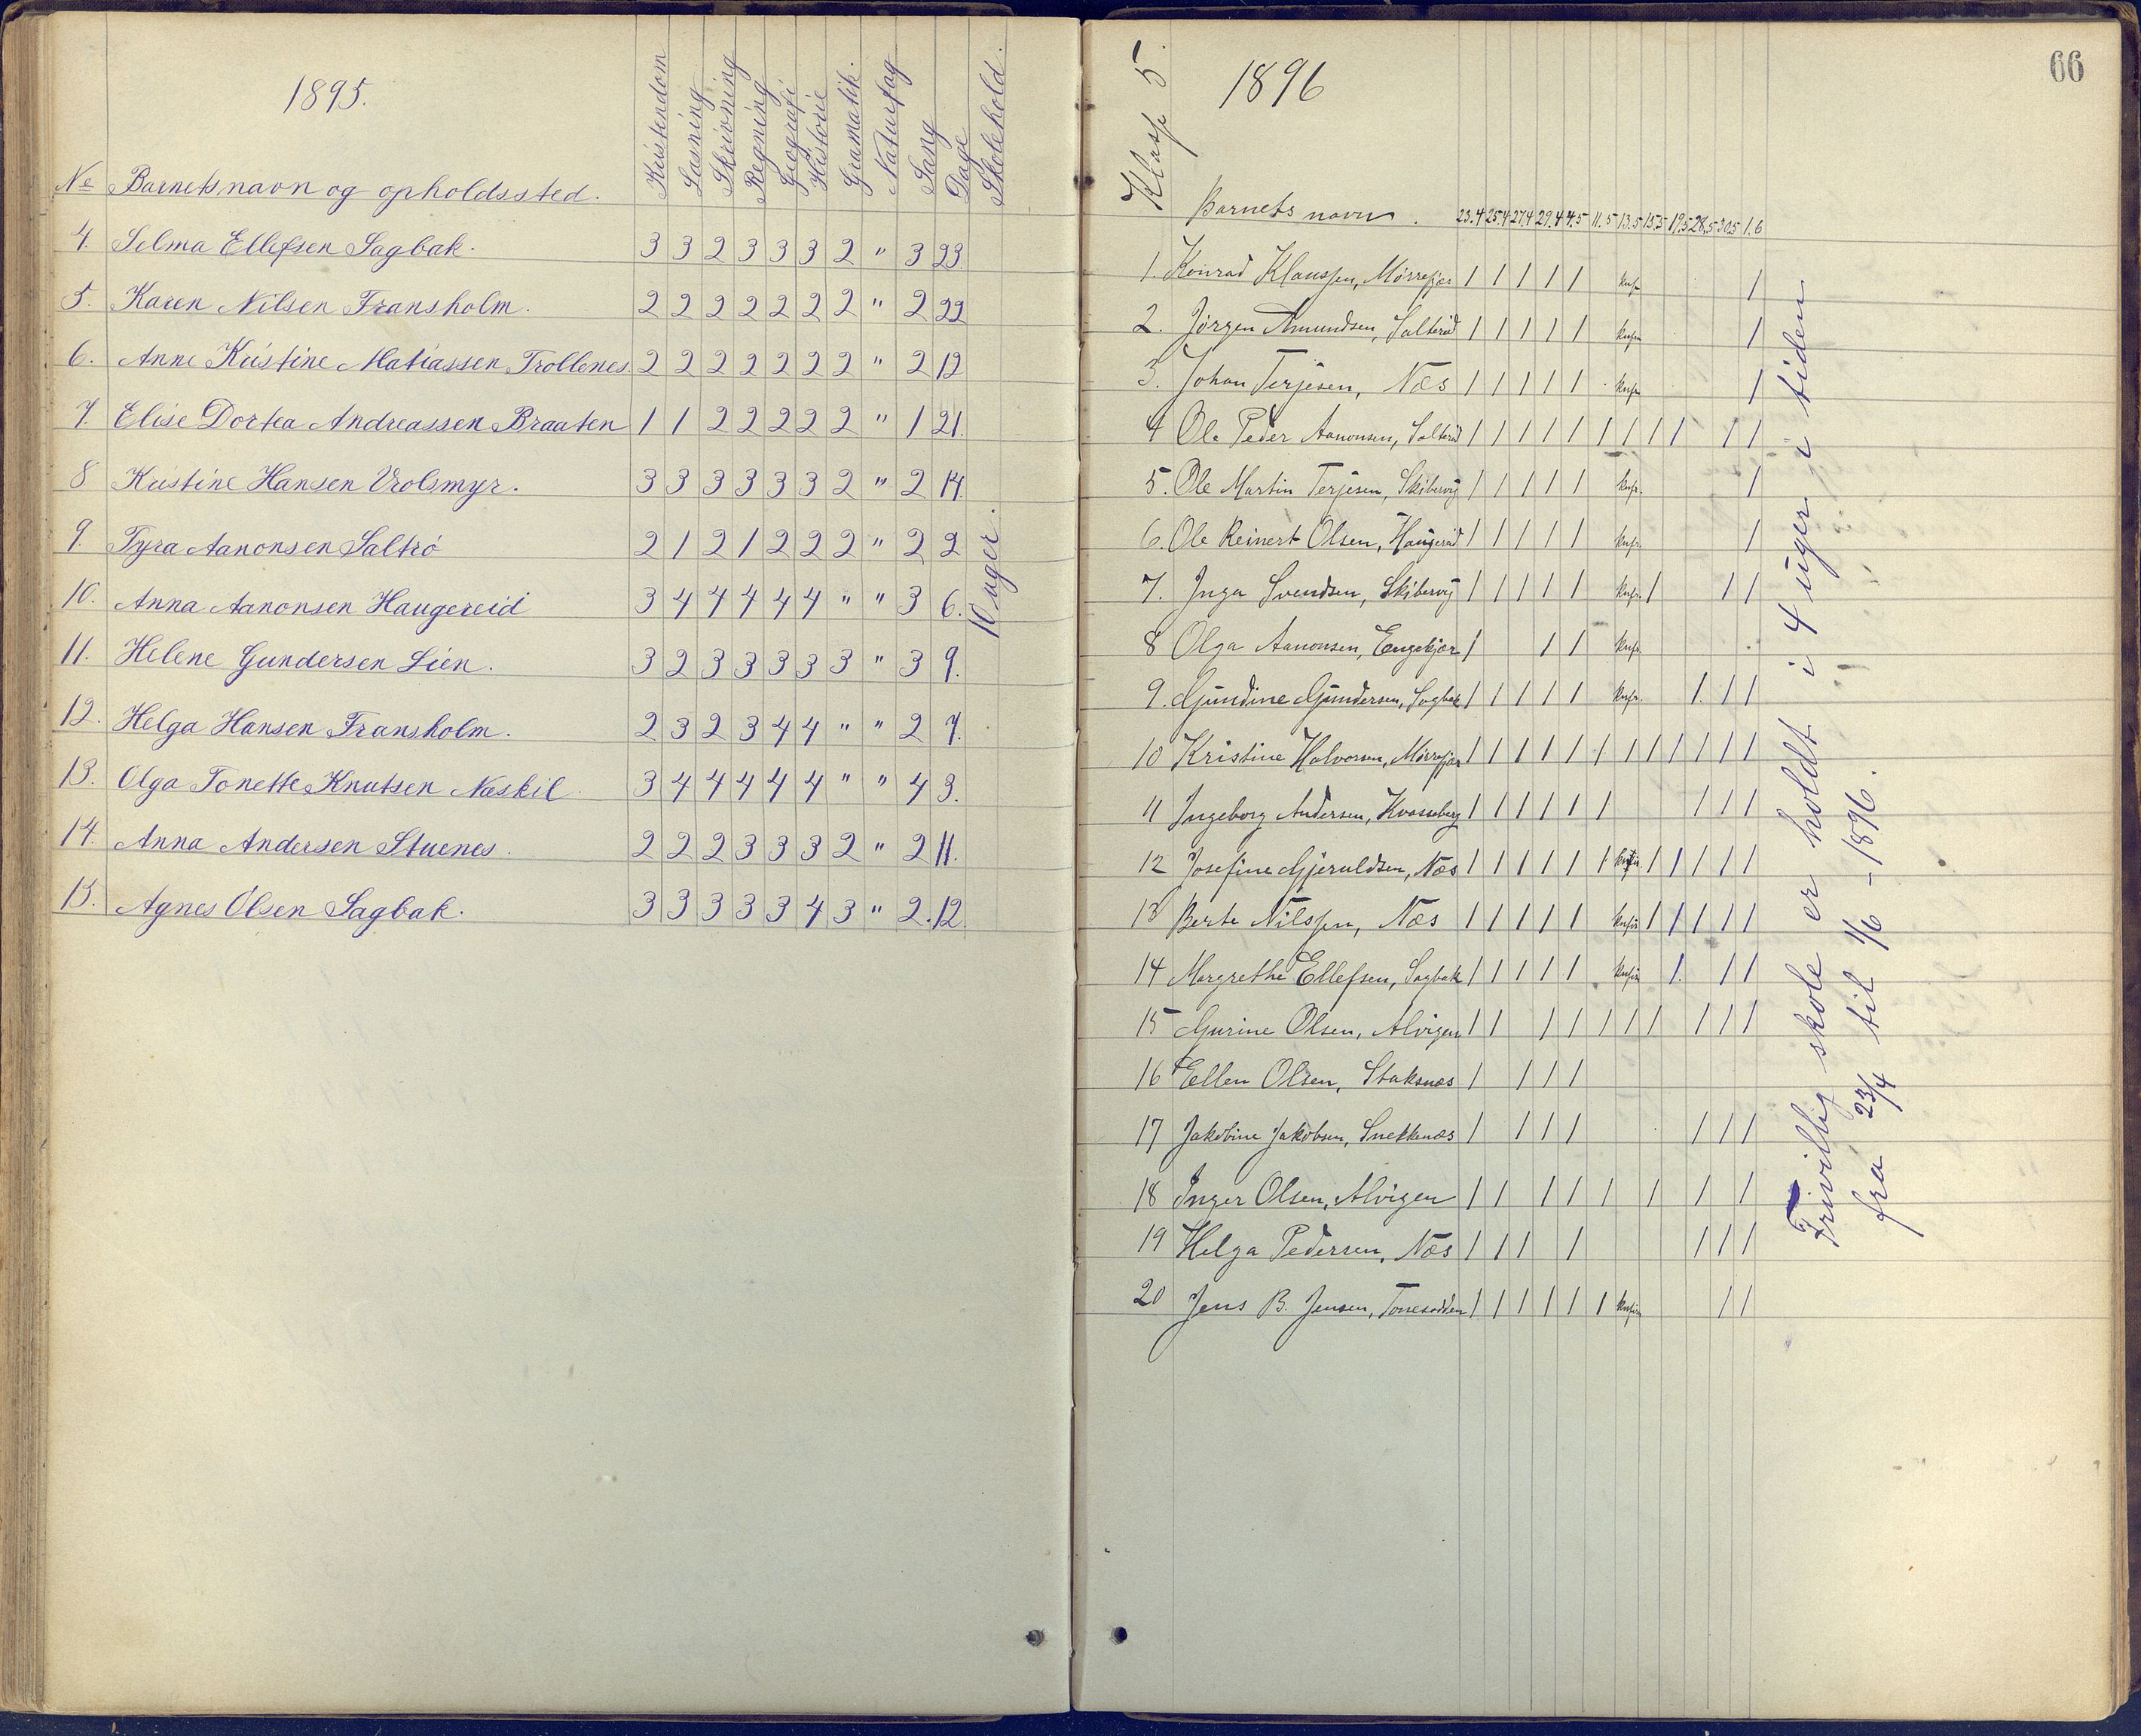 1895.
№ Barnets navn og opholdssted. Kristendom Læsning Skrivning Regning Geografi Historie Gramatik. Naturfag Sang Dage Skolehold.
4. Selma Ellefsen Sagbak. 3 3 2 3 3 3 2 " 3 23.
5. Karen Nilsen Fransholm. 2 2 2 2 2 2 2 " 2 22
6. Anne Kristine Matiassen Trollenes. 2 2 2 2 2 2 2 " 2 12
7. Elise Dortea Andreassen Braaten 1 1 2 2 2 2 2 " 1 21.
8 Kristine Hansen Vrolsmyr. 3 3 3 3 3 3 2 " 2 14.
9. Tyra Aanonsen Saltrö 2 1 2 1 2 2 2 " 2 2
10. Anna Aanonsen Haugereid 3 4 4 4 4 4 " " 3 6.
11. Helene Gundersen Lien. 3 2 3 3 3 3 3 " 3 9.
12. Helga Hansen Fransholm. 2 3 2 3 4 4 " " 2 7.
13. Olga Tonette Knutsen Næskil 3 4 4 4 4 4 " " 4 3.
14. Anna Andersen Stuenes. 2 2 2 3 3 3 2 " 2 11.
15. Agnes Olsen Sagbak. 3 3 3 3 3 4 3 " 2. 12.
10 uger.
66
Klasse 5.
1896
Barnets navn. 23.4 25.4 27.4 29.4 4.5 11.5 13.5 15.5 19.5 28.5 30.5 1.6
1. Konrad Klaussen, Mörrefjær 1 1 1 1 1 1
2. Jörgen Amundsen, Salteröd 1 1 1 1 1 1
3. Johan Terjesen, Næs 1 1 1 1 1 1
4 Ole Peder Aanonsen, Salteröd 1 1 1 1 1 1 1 1 1 1 1 1
5. Ole Martin Terjesen, Skibervig 1 1 1 1 1 1
6. Ole Reinert Olsen, Haugeröd 1 1 1 1 1 1
7. Inga Svendsen, Skibervig 1 1 1 1 1 1 1 1
8 Olga Aanonsen, Engekjær 1 1 1
9. Gundine Gundersen, Sagbak 1 1 1 1 1 1. 1 1
10 Kristine Halvorsen, Mörrefjær 1 1 1 1 1 1 1 1 1 1 1 1
11 Ingeborg Andersen, Kvasseberg 1 1 1 1 1 1 1 1 1
12 Josefine Gjeruldsen, Næs 1 1 1 1 1 1 1 1 1 1 1
13 Berte Nilssen, Næs 1 1 1 1 1 1 1 1 1 1
14 Margrethe Ellefsen, Sagbak 1 1 1 1 1 1. 1 1
15 Gurine Olsen, Alvigen 1 1 1 1 1 1 1 1 1 1
16 Ellen Olsen, Staksnæs 1 1 1 1
17 Jakobine Jakobsen, Snekkenæs 1 1 1 1 1 1 1
18 Inger Olsen, Alvigen 1 1 1 1 1 1 1 1
19 Helga Pedersen, Næs 1 1 1 1 1 1 1
20 Jens B. Jensen, Tonesodden 1 1 1 1 1 1 1 1
Frivillig skole er holdt i 4 uger i tiden
fra 23/4 til 1/6 - 1896.